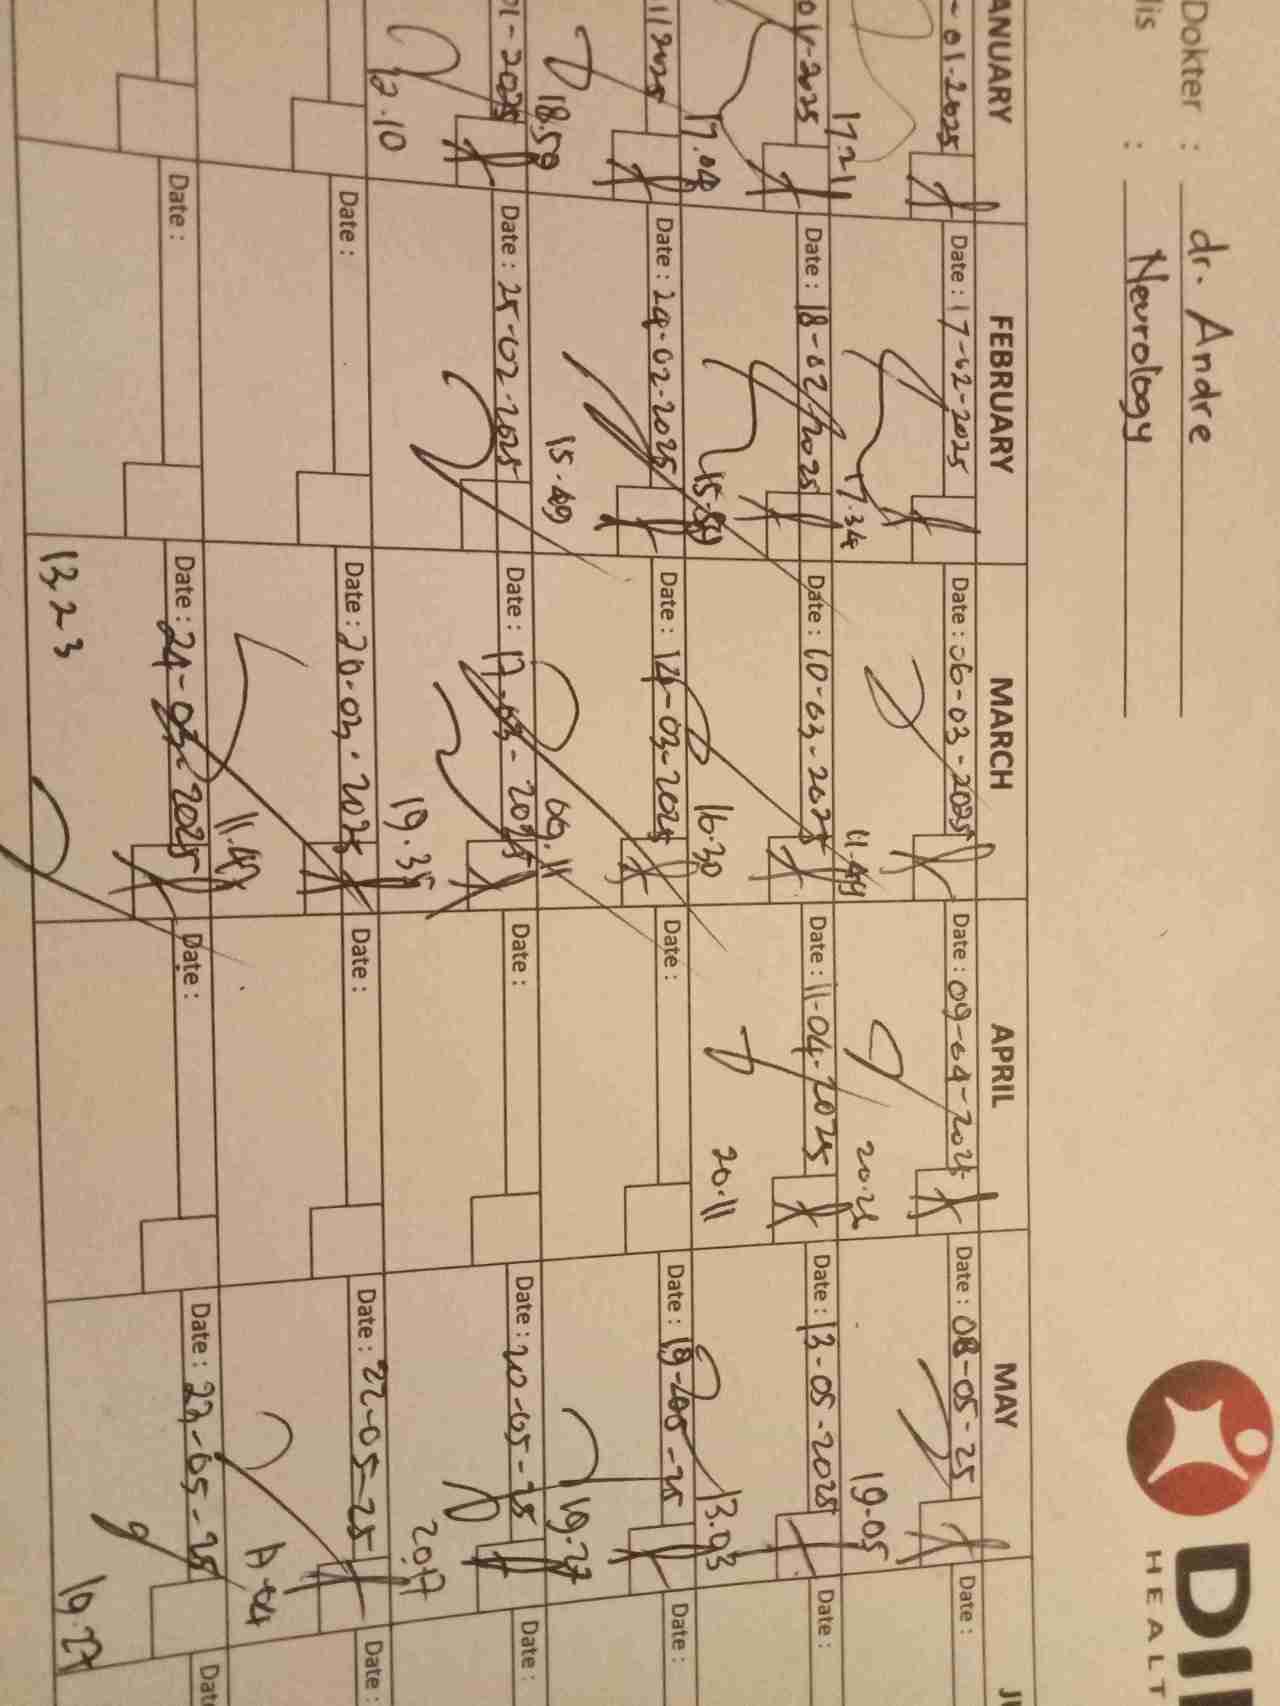 Dokter : dr. Andre
lis : Neurology
DI
HEALT
ANUARY FEBRUARY MARCH APRIL MAY
- 01-2025 Date : 17-02-2025 Date : 06-03-2025 Date : 09-04-2025 Date : 08-05-25 Date :
17.21 17.34 11.44 20.21 19.05
01-2025 Date : 18-02-2025 Date : 10-03-2025 Date : 11-04-2025 Date : 13-05-2025 Date :
17.04 15.54 16.30 20.11 13.03
2025 Date : 24-02-2025 Date : 14-03-2025 Date : Date : 19-05-25 Date :
18.50 15.49 09.11 19.27
01-2025 Date : 25-02-2025 Date : 17-03-2025 Date : Date : 20-05-25 Date :
12.10 19.35 20.17
Date : Date : 20.03.2025 Date : Date : 22-05-25 Date :
11.47
Date : Date : 24-03-2025 Date : Date : 23-05-25 Dat
13.23 19.27